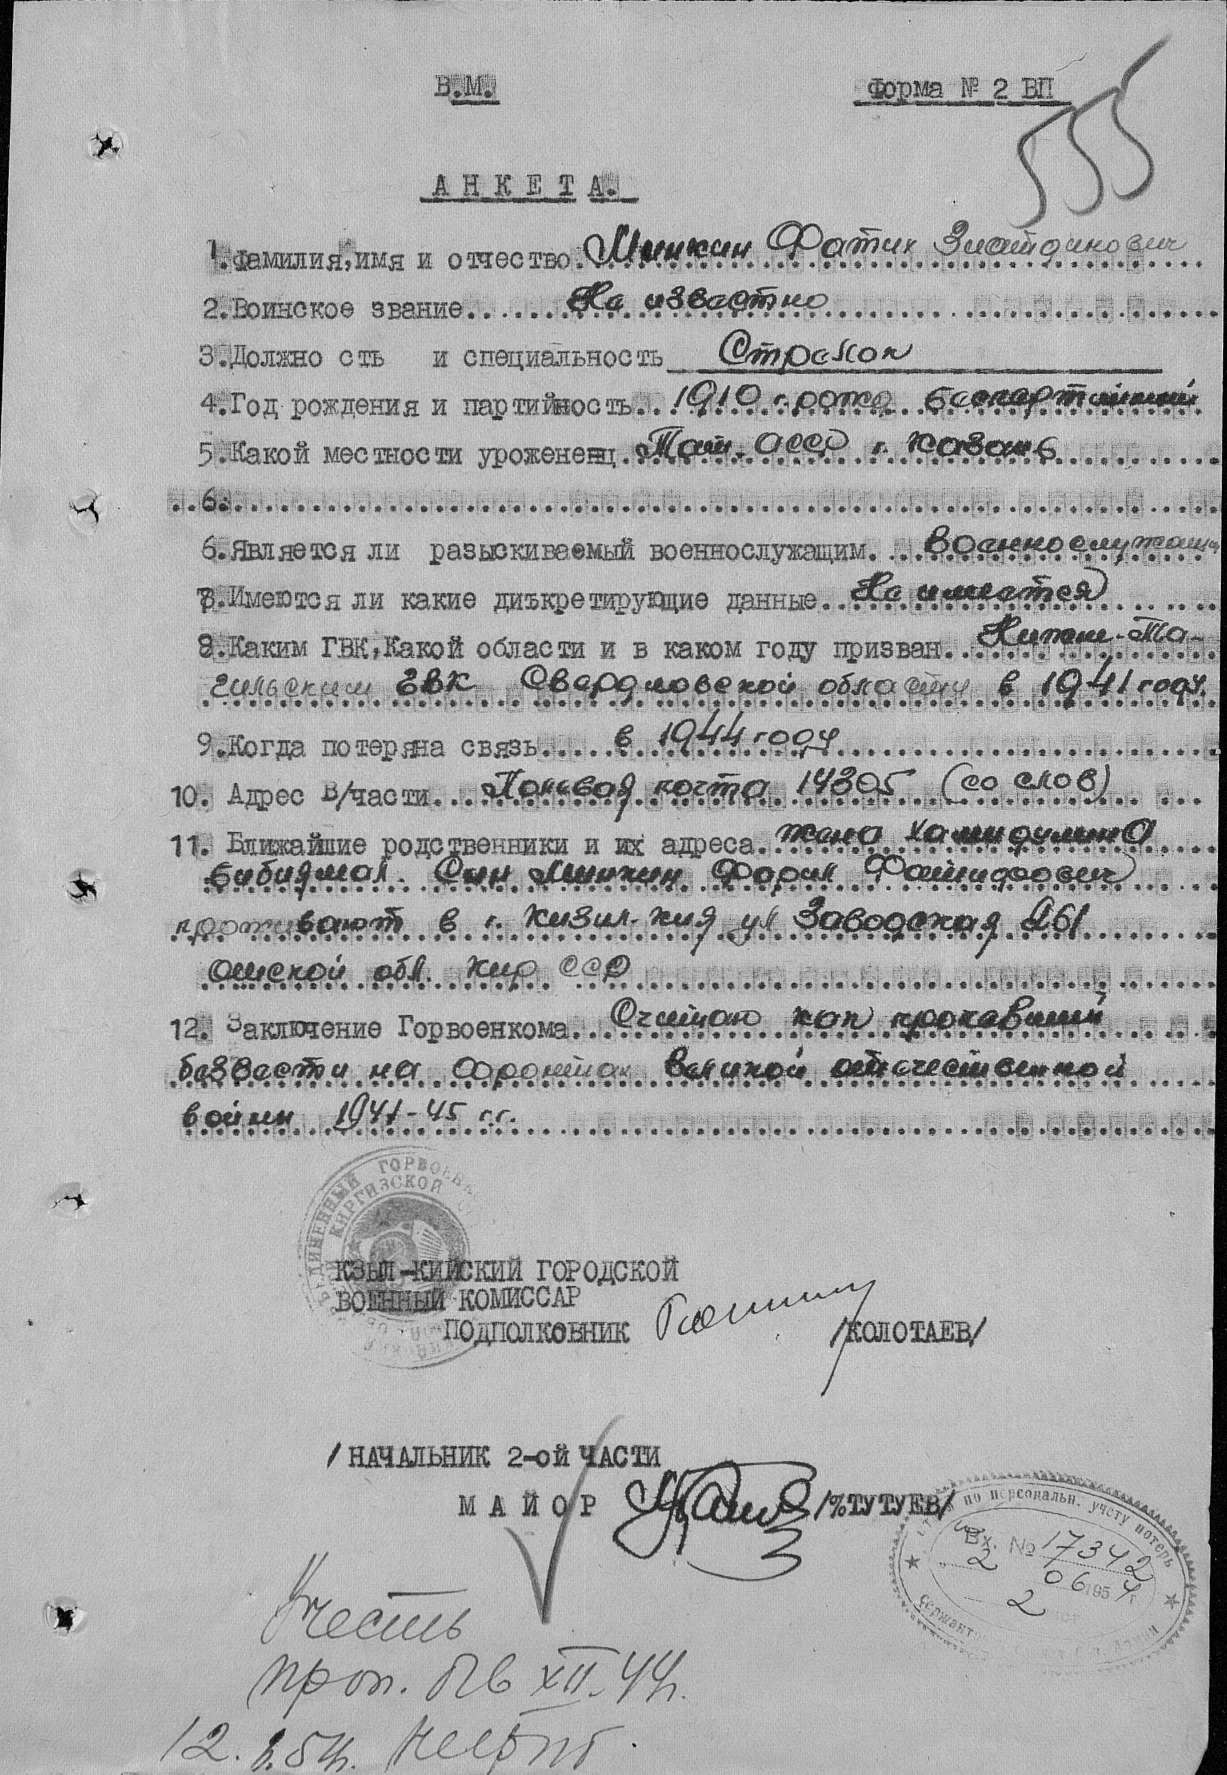 В.М.
Форма № 2 ВП
555
АНКЕТА.
1.Фамилия,имя и отчество. Минкин Фатих Зиатдинович
2.Воинское звание. Не известно
3.Должно сть и специальность Стрелок
4.Год рождения и партийность. 1910 г. рожд. беспартийный
5.Какой местности уроженец. Тат. АССР г. Казань
6.
6.Является ли разыскиваемый военнослужащим. Военнослужащи
7.Имеются ли какие дискретирующие данные. Не имеется
8.Каким ГВК,Какой области и в каком году призван. Нижне-Та-
гильским ГВК Свердловской области в 1941 году.
9.Когда потеряна связь. в 1944 году
10. Адрес В/части. Полевая почта 14305 (со слов)
11. Ближайшие родственники и их адреса. жена Хамидулина
Бибиямал. Сын Минкин Фарид Фатифович
проживают в г. Кизил-Кия ул Заводская 261
Ошской обл. Кир ССР
12. Заключение Горвоенкома. Считаю как пропавший
безвести на фронтах Великой отечественной
войны 1941-45 г.г.
ОБЪЕДИНЕННЫЙ ГОРВОЕН
КИРГИЗСКОЙ
КЗЫЛ-КИЙСКИЙ ГОРОДСКОЙ
ВОЕННЫЙ КОМИССАР
ПОДПОЛКОВНИК /КОЛОТАЕВ/
/НАЧАЛЬНИК 2-ой ЧАСТИ
МАЙОР /%ТУТУЕВ/
по персональн. учету потерь
сержант
Вх. № 17342
2 06 1954 г.
2
Учесть
проп. б/в XII.44г.
12. 54г.